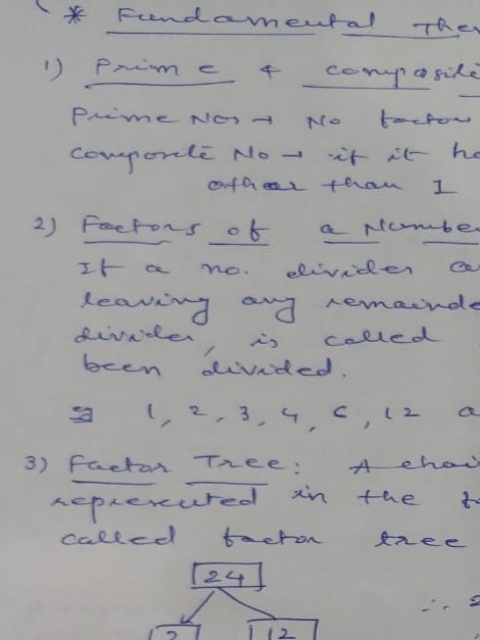 * Fundamental Ther
1) Prime & composite
Prime Nos → No factor
Composite No → if it ha
other than 1
2) Factors of a Number
If a no. divider a
leaving any remainde
divider, is called
been divided.
eg 1, 2, 3, 4, 6, 12 a
3) Factor Tree: A chai
represented in the fo
called factor tree
24
∴ 2
2 12